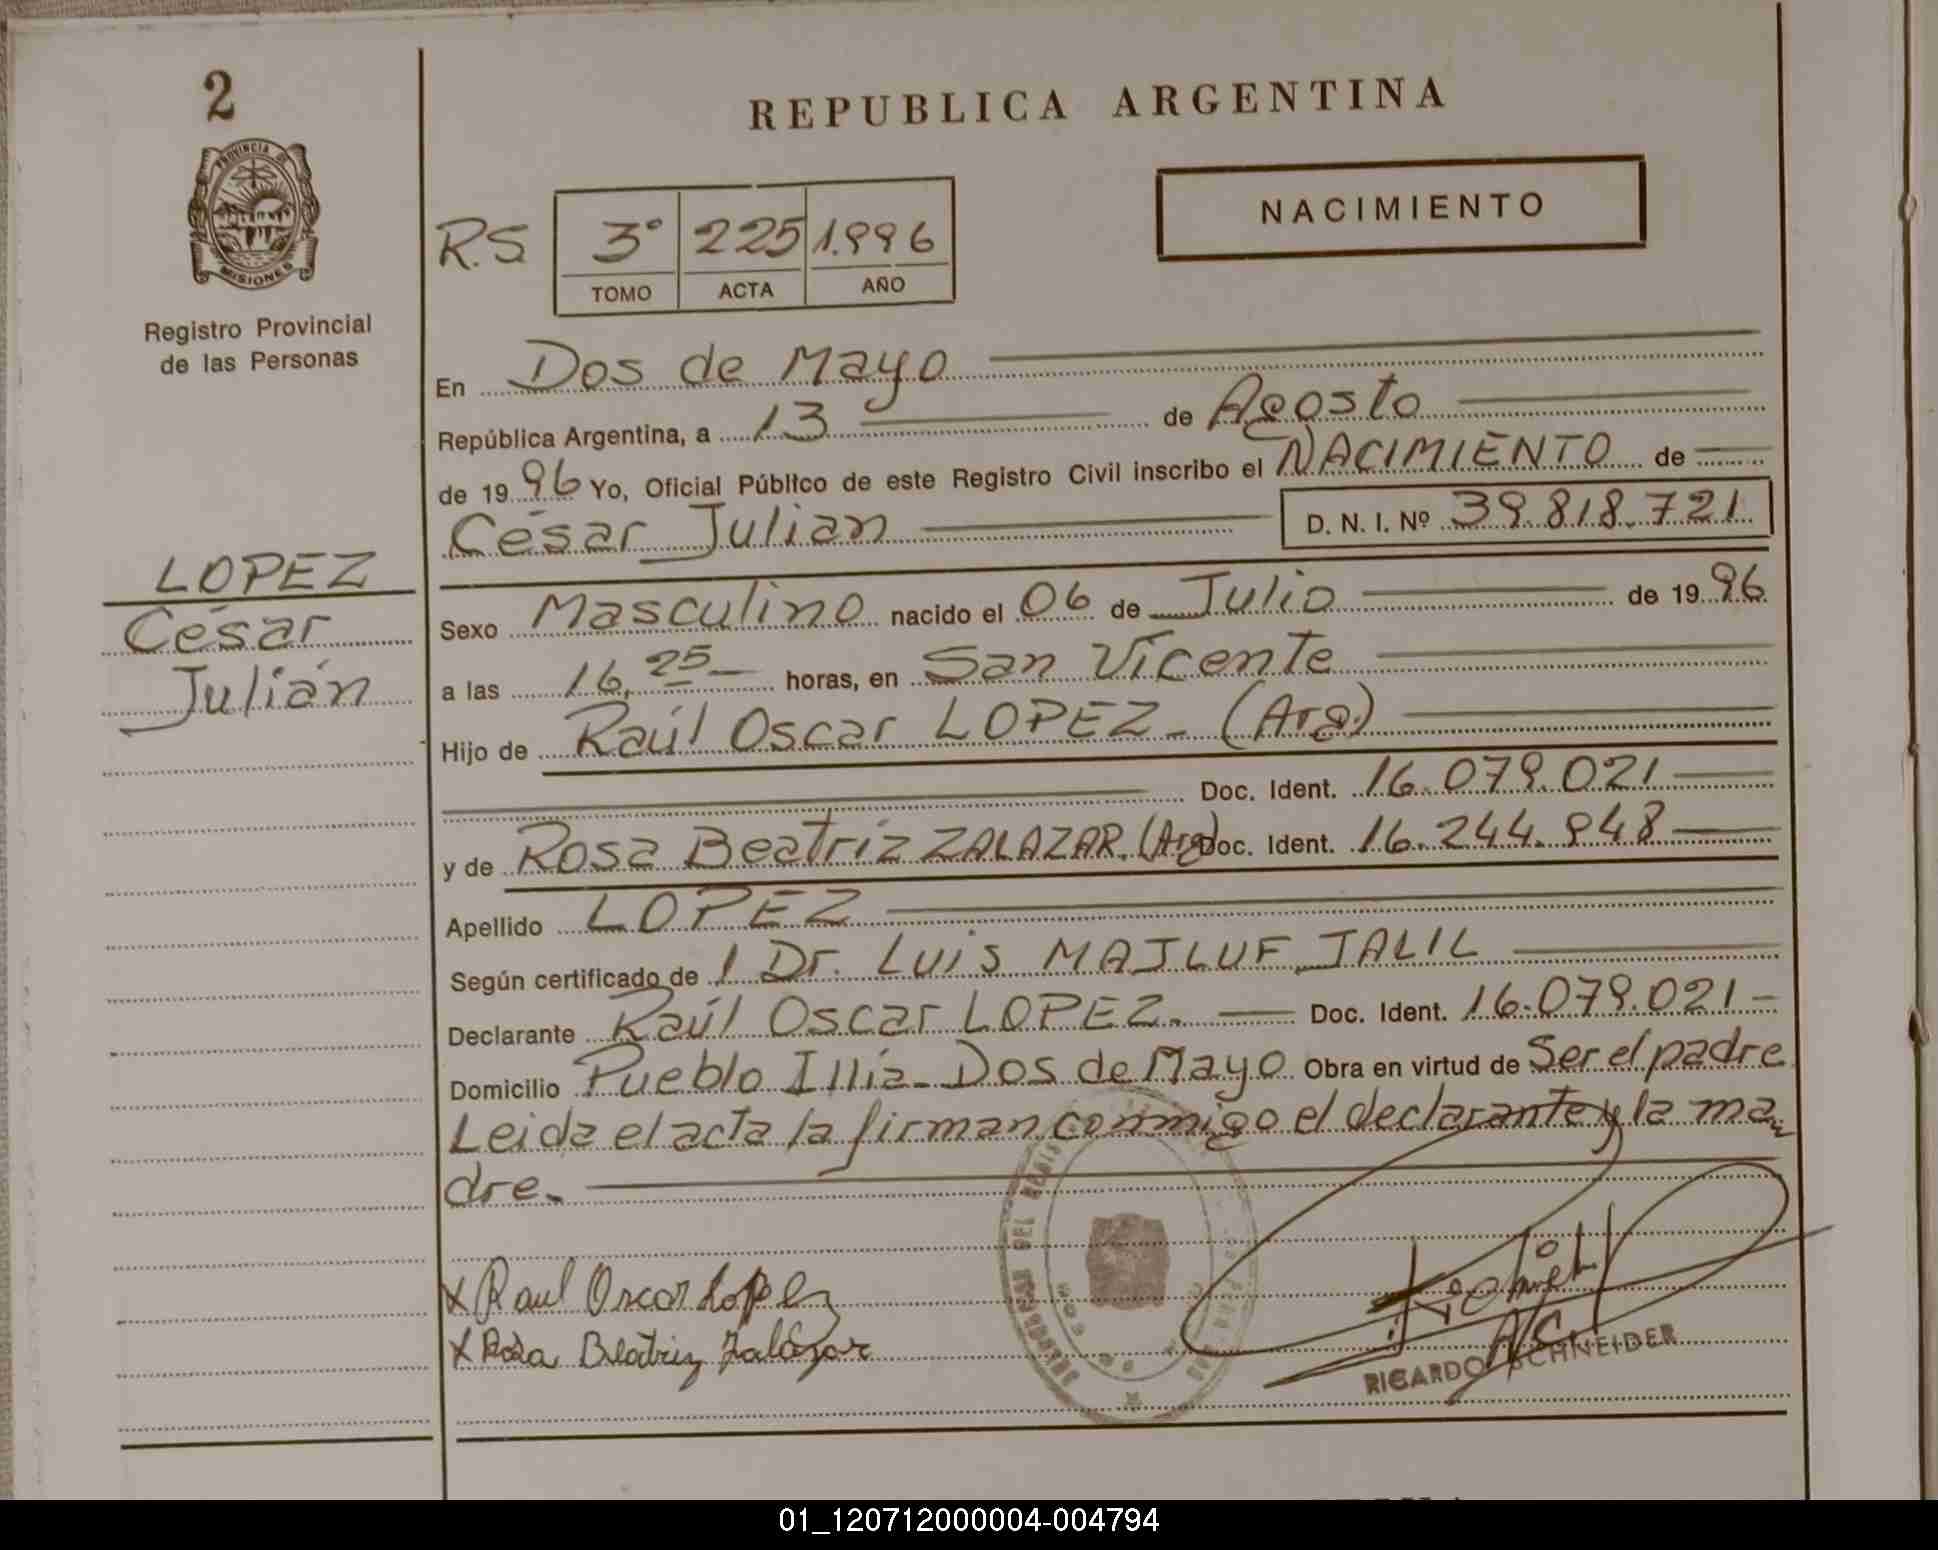 2
PROVINCIA DE
MISIONES
Registro Provincial
de las Personas
LOPEZ
César
Julián
REPUBLICA ARGENTINA
NACIMIENTO
R.S. 3° 225 1.996
TOMO ACTA AÑO
En Dos de Mayo
República Argentina, a 13 de Agosto
de 1996 Yo, Oficial Público de este Registro Civil inscribo el NACIMIENTO de
César Julián D. N. I. Nº 39.818.721
Sexo Masculino nacido el 06 de Julio de 1996
a las 16,25 horas, en San Vicente
Hijo de Raúl Oscar LOPEZ - (Arg.)
Doc. Ident. 16.079.021
y de Rosa Beatríz ZALAZAR. (Arg) Doc. Ident. 16.244.948
Apellido LOPEZ
Según certificado de 1 Dr. Luis MAJLUF JALIL
Declarante Raúl Oscar LOPEZ. Doc. Ident. 16.079.021
Domicilio Pueblo Illia - Dos de Mayo Obra en virtud de Ser el padre
Leida el acta la firman conmigo el declarante y la ma
dre.
x Raul Oscar Lopez
x Rosa Beatriz Zalázar
RICARDO SCHNEIDER
01_120712000004-004794